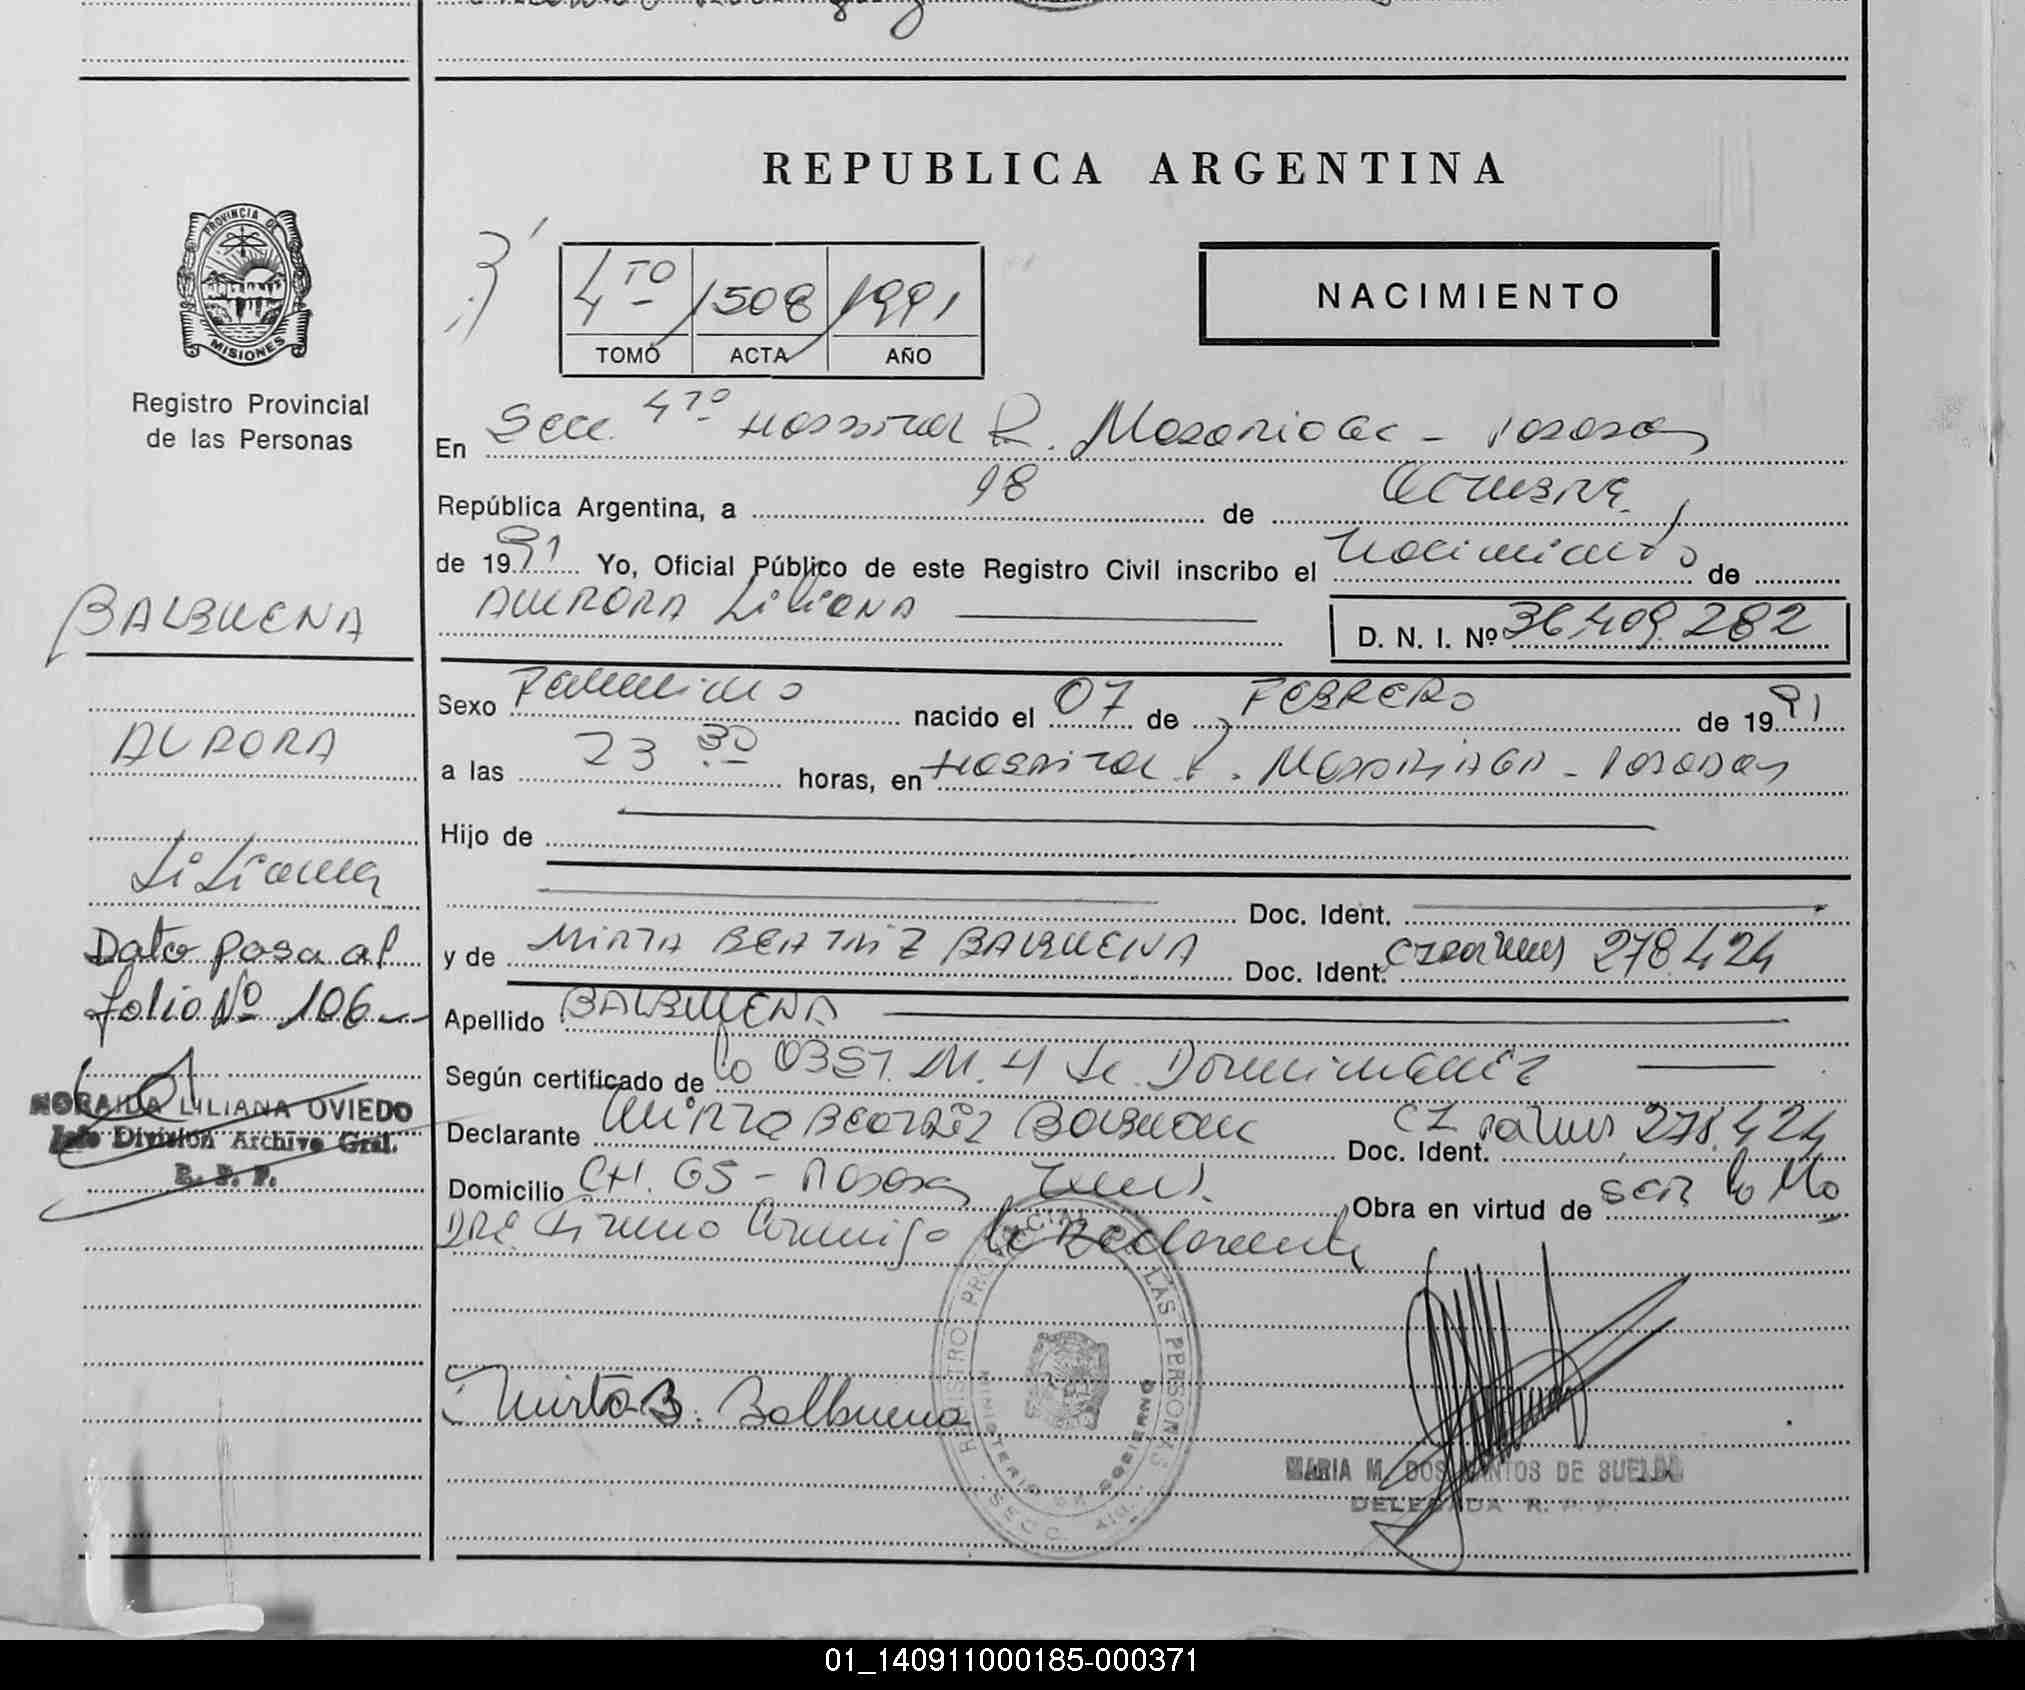 REPUBLICA ARGENTINA
PROVINCIA DE
MISIONES
Registro Provincial
de las Personas
4TO 1508 1991
TOMO ACTA AÑO
NACIMIENTO
En Secc. 4TO Hospital R. Madariaga - Posadas
República Argentina, a 18 de Octubre
de 1991 Yo, Oficial Público de este Registro Civil inscribo el Nacimiento de
AURORA LiLiANA
D. N. I. Nº 36.409.282
BALBUENA
AURORA
LiLiana
Dato pasa al
folio Nº 106
NORAIDA LILIANA OVIEDO
Jefe División Archivo Gral.
R. P. P.
Sexo Femenino nacido el 07 de FEBRERO de 1991
a las 23 30 horas, en Hospital R. MADARIAGA - POSADAS
Hijo de
Doc. Ident.
y de MIRTA BEATRIZ BALBUENA Doc. Ident. CI 278.424
Apellido BALBUENA
Según certificado de la OBST. M. H de Dominguez
Declarante Mirta Beatriz Balbuena Doc. Ident. CI 278.424
Domicilio CH. 65 - Posadas Obra en virtud de SER la Ma
DRE Firma Conmigo la Declarante
Mirta B. Balbuena
REGISTRO PROVINCIAL LAS PERSONAS
MINISTERIO DE GOBIERNO
SECC. 4ta.
MARIA M. DOS SANTOS DE SUELDO
DELEGADA R. P. P.
01_140911000185-000371